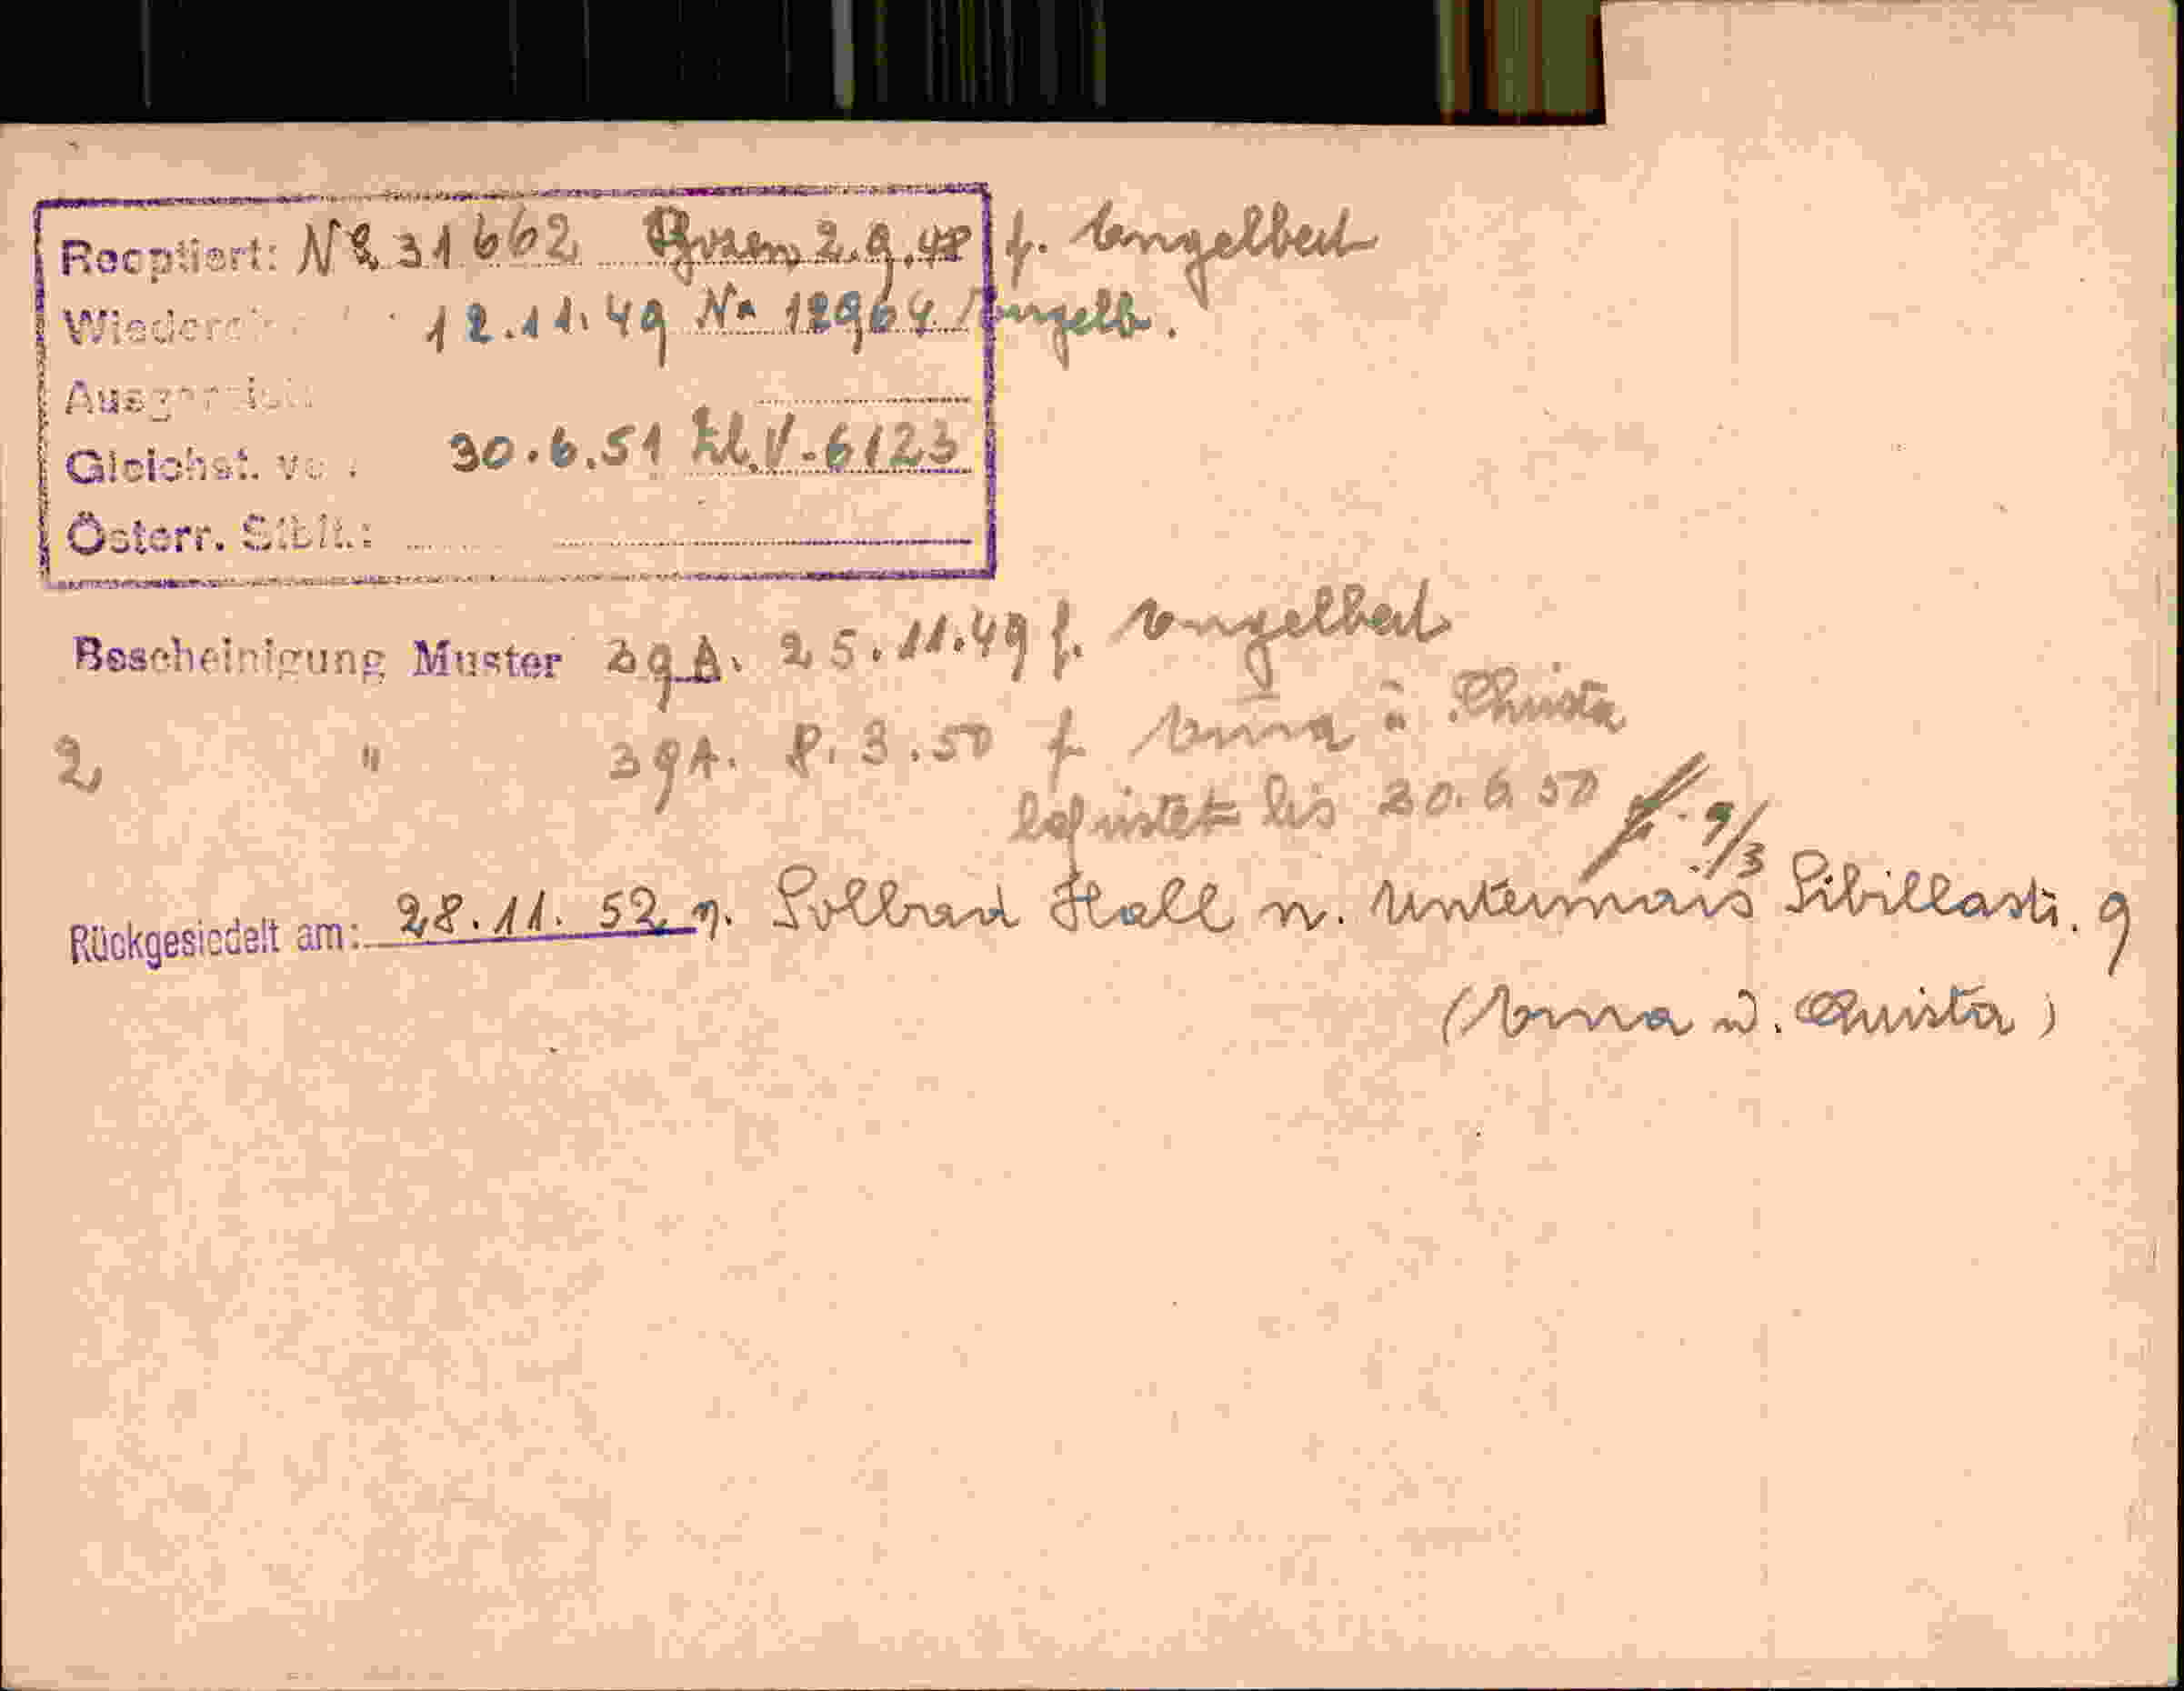 Reoptiert: No 31662 Bozen 2.9.48 f. Engelbert
12.11.49 No 12964 Engelb.
Gleichst. v. 30.6.51 Zl. V-6123
Österr. Stblt.:
Bescheinigung Muster 39A. 25.11.49 f. Engelbert
2, " 39A. 8.3.50 f Anna u. Christa
befristet bis 30.6.50 9/3
Rückgesiedelt am: 28.11.52 v. Solbad Hall n. Untermais Sibillastr. 9
(Anna u. Christa)